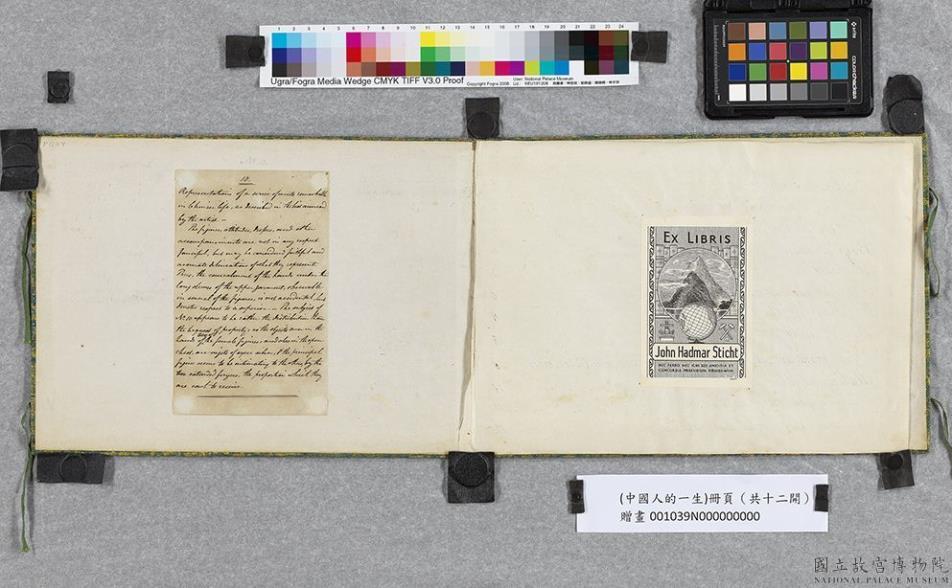 1 2 3 4 5 6 7 8 9 10 11 12 13 14 15 16 17 18 19 20 21 22 23 24
Ugra/Fogra Media Wedge CMYK TIFF V3.0 Proof
User: National Palace Museum
12.
Representations of a series of
in Chinese life, as described in
by the artist. —
The figures, attitudes, dresses, and other
accompaniments are not in any respect
fanciful, but may be considered faithful and
accurate delineations of what they represent
Thus, the concealment of the hands under the
long sleeves of the upper garment, observable
in several of the figures, is not accidental, but
denotes respect to a superior. — The subject of
No. 10 appears to be rather the distribution than
the of property; as the objects seen in the
hands of the female figures, and also in the open
chest, are ingots of sycee silver, & the principal
figure seems to be intimating to the others, by the
two extended fingers, the proportion which they
are each to receive.
EX LIBRIS
John Hadmar Sticht
NEC FERRO NEC IGNI SED
CONCORDIA
(中國人的一生)冊頁（共十二開）
贈畫 001039N000000000
國立故宮博物院
NATIONAL PALACE MUSEUM